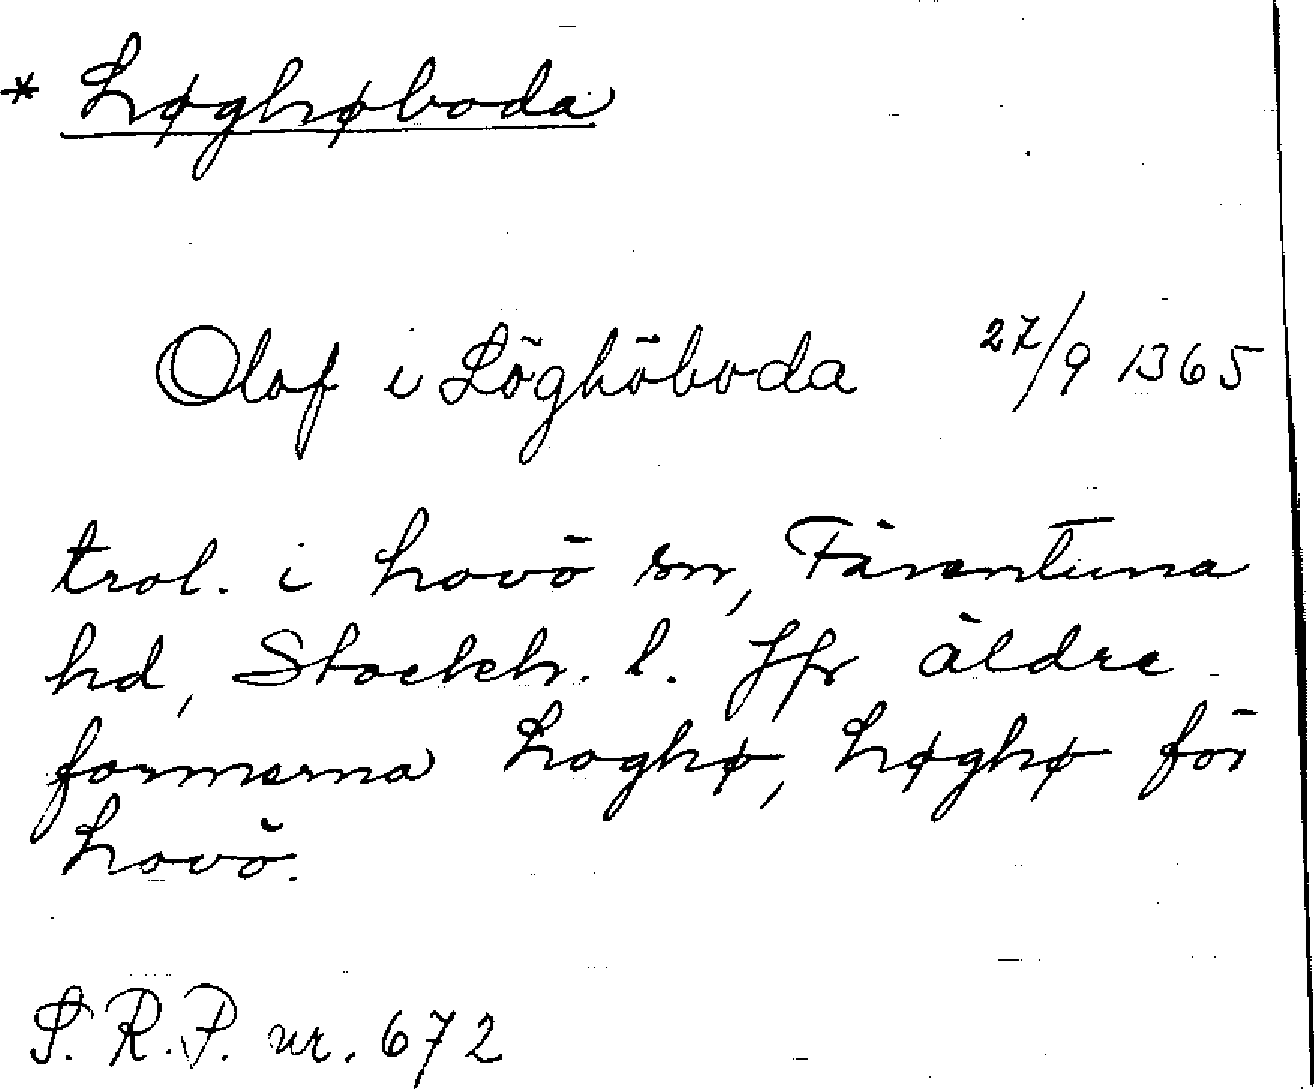 * Løghøboda
Olof i Löghöboda 27/9 1365
trol. i Lovö sn, Färentuna
hd, Stockh. l. Jfr äldre
formerna Loghø, Løghø för
Lovö.
S.R.P. nr. 672